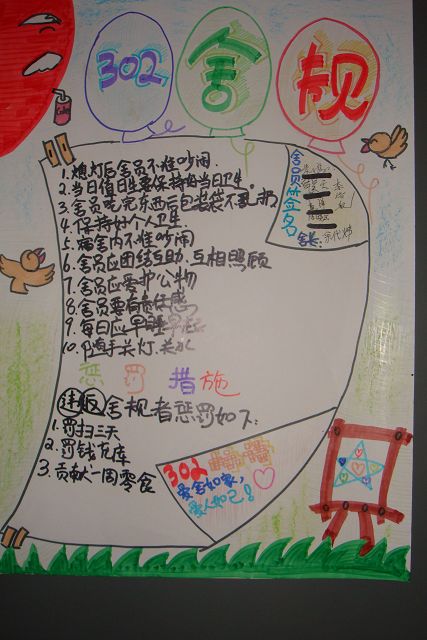 302 舍规
1. 熄灯后舍员不准吵闹.
2. 当日值日生要保持好当日卫生.
3. 舍员吃完东西后包装袋不要乱扔
4. 保持好个人卫生
5. 宿舍内不准吵闹
6. 舍员应团结互助、互相照顾
7. 舍员应爱护公物
8. 舍员要有责任感
9. 每日应早睡早起
10. 随手关灯、关水
惩罚措施
违反舍规者惩罚如下:
1. 罚扫三天
2. 罚钱充库
3. 贡献一周零食
舍员签名
舍长:
302
爱舍如家,
爱人如己!